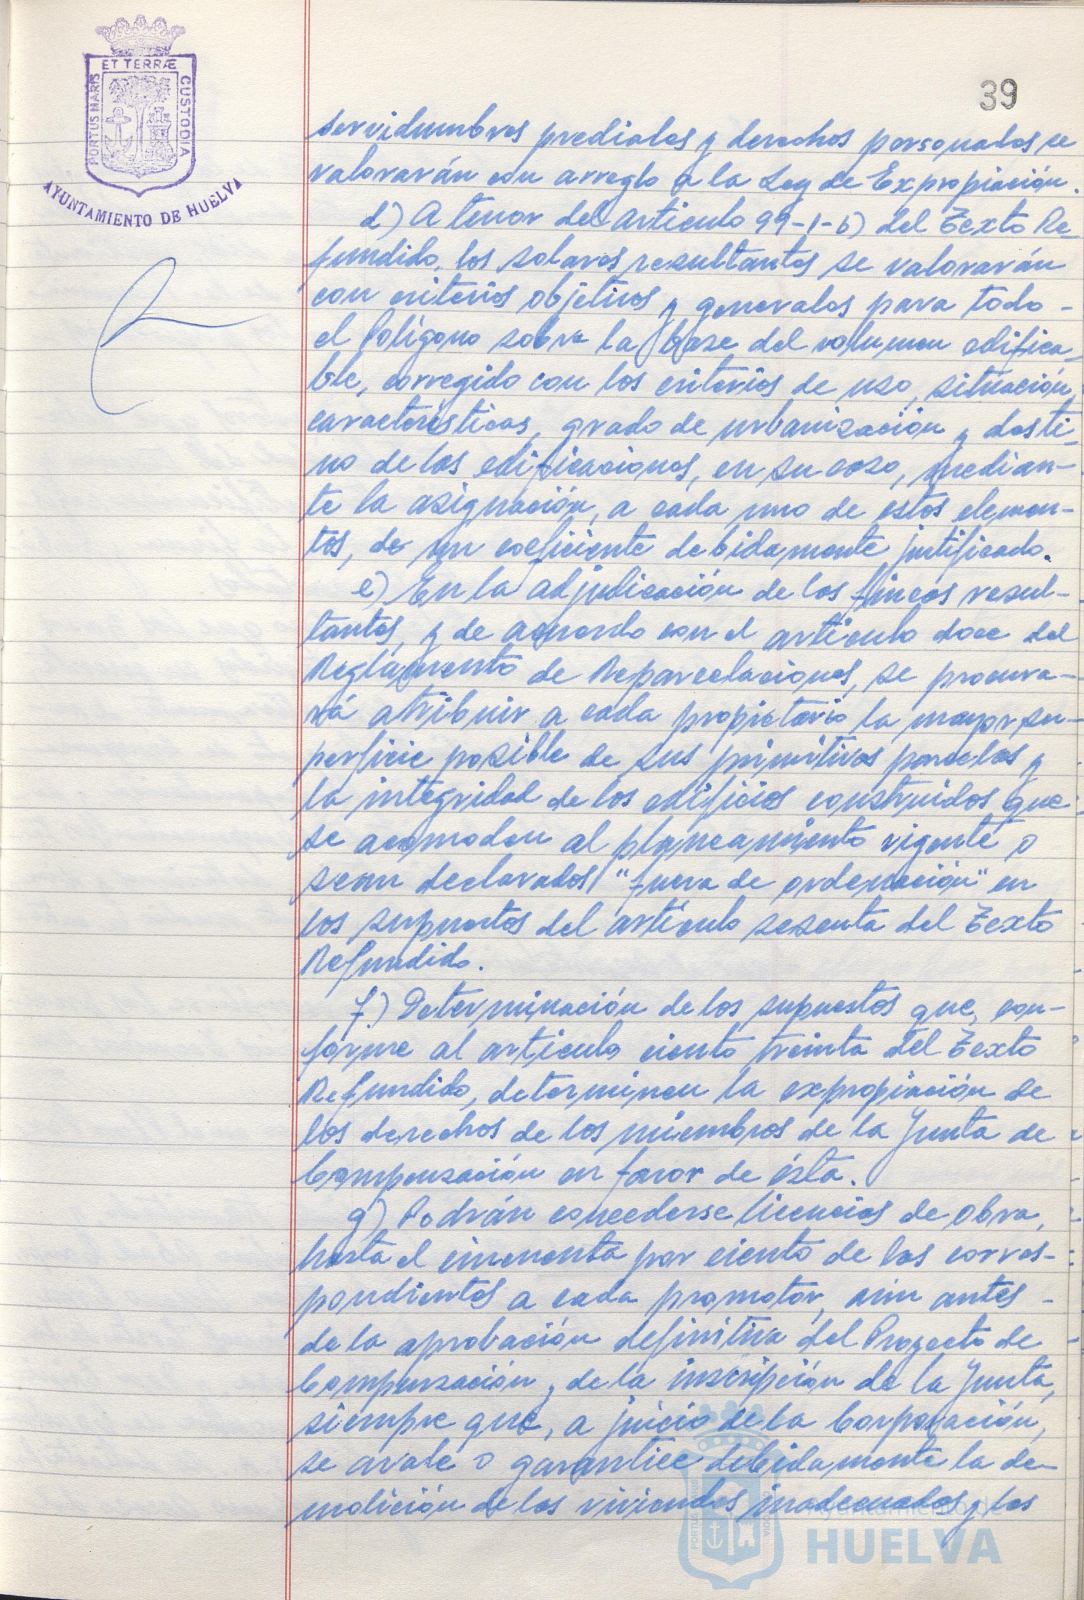 39
PORTUS MARIS ET TERRÆ CUSTODIA
AYUNTAMIENTO DE HUELVA
servidumbres prediales y derechos personales se
valorarán con arreglo a la Ley de Expropiación.
d) A tenor del artículo 99-1-b) del Texto Re-
fundido, los solares resultantes se valorarán
con criterios objetivos y generales para todo -
el Polígono sobre la base del volumen edifica-
ble, corregido con los criterios de uso, situación,
características, grado de urbanización y desti-
no de las edificaciones, en su caso, median-
te la asignación, a cada uno de estos elemen-
tos, de un coeficiente debidamente justificado.
e) En la adjudicación de las fincas resul-
tantes, y de acuerdo con el artículo doce del
Reglamento de Reparcelaciones, se procura-
rá atribuir a cada propietario la mayor su-
perficie posible de sus primitivas parcelas y
la integridad de los edificios construidos que
se acomoden al planeamiento vigente o
sean declarados "fuera de ordenación" en
los supuestos del artículo sesenta del Texto
Refundido.
f) Determinación de los supuestos que, con-
forme al artículo ciento treinta del Texto
Refundido, determinen la expropiación de
los derechos de los miembros de la Junta de
Compensación en favor de ésta.
g) Podrán concederse licencias de obra,
hasta el cincuenta por ciento de las corres-
pondientes a cada promotor, aún antes -
de la aprobación definitiva del Proyecto de
Compensación y de la inscripción de la Junta,
siempre que, a juicio de la Corporación,
se avale o garantice debidamente la de-
molición de las viviendas inadecuadas y las
Ayuntamiento de
HUELVA